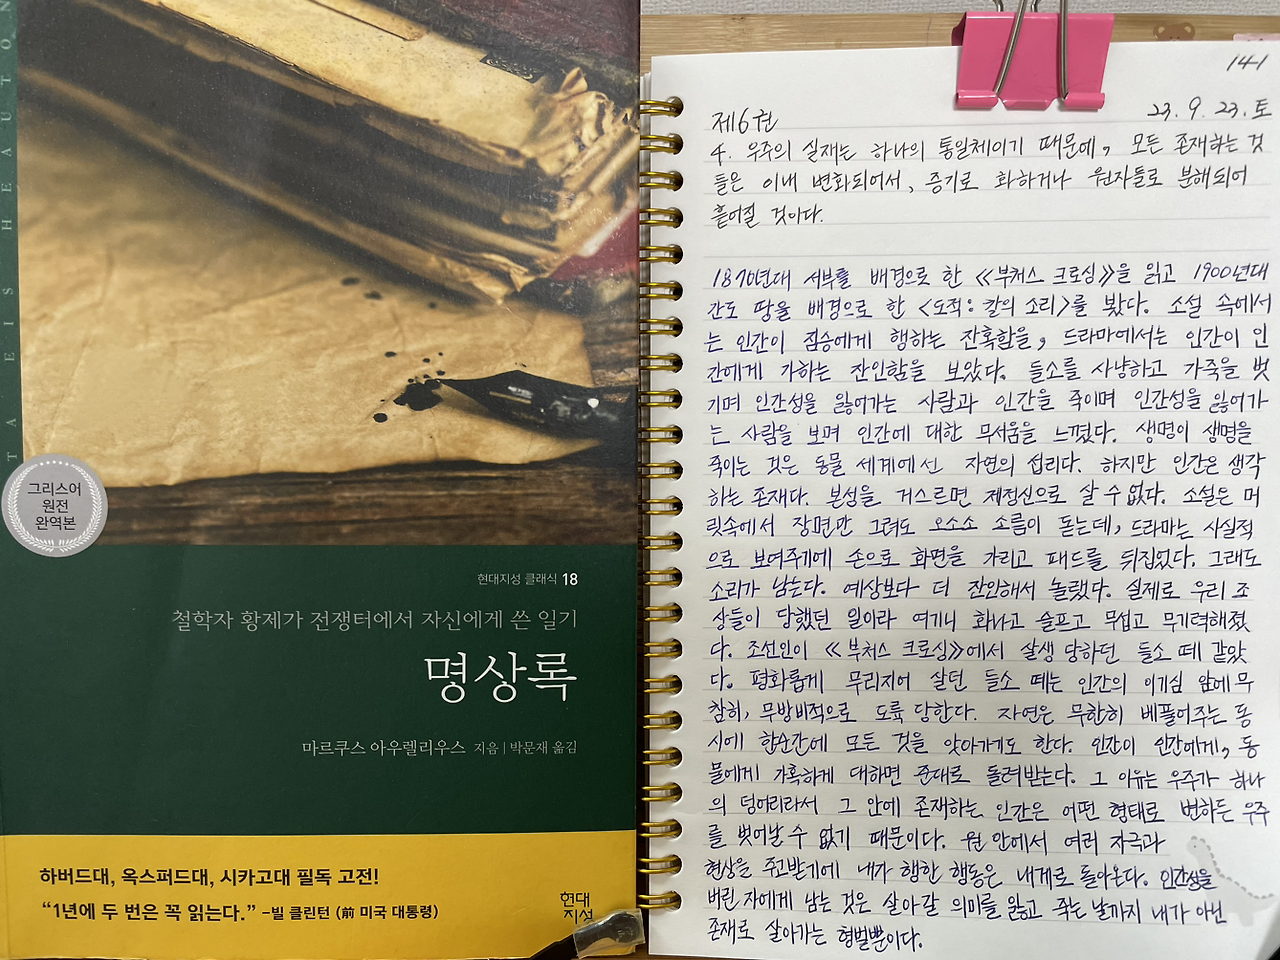 TA EIS HEAUTON
그리스어
원전
완역본
현대지성 클래식 18
철학자 황제가 전쟁터에서 자신에게 쓴 일기
명상록
마르쿠스 아우렐리우스 지음 | 박문재 옮김
하버드대, 옥스퍼드대, 시카고대 필독 고전!
“1년에 두 번은 꼭 읽는다.” –빌 클린턴 (前 미국 대통령)
현대
지성
141
23. 9. 23. 토
제6권
4. 우주의 실재는 하나의 통일체이기 때문에, 모든 존재하는 것
들은 이내 변화되어서, 증기로 화하거나 원자들로 분해되어
흩어질 것이다.
1870년대 서부를 배경으로 한 《부처스 크로싱》을 읽고 1900년대
간도 땅을 배경으로 한 <도적: 칼의 소리>를 봤다. 소설 속에서
는 인간이 짐승에게 행하는 잔혹함을, 드라마에서는 인간이 인
간에게 가하는 잔인함을 보았다. 들소를 사냥하고 가죽을 벗
기며 인간성을 잃어가는 사람과 인간을 죽이며 인간성을 잃어가
는 사람을 보며 인간에 대한 무서움을 느꼈다. 생명이 생명을
죽이는 것은 동물 세계에선 자연의 섭리다. 하지만 인간은 생각
하는 존재다. 본성을 거스르면 제정신으로 살 수 없다. 소설은 머
릿속에서 장면만 그려도 오소소 소름이 돋는데, 드라마는 사실적
으로 보여주기에 손으로 화면을 가리고 패드를 뒤집었다. 그래도
소리가 남는다. 예상보다 더 잔인해서 놀랬다. 실제로 우리 조
상들이 당했던 일이라 여기니 화나고 슬프고 무섭고 무기력해졌
다. 조선인이 《부처스 크로싱》에서 살생 당하던 들소 떼 같았
다. 평화롭게 무리지어 살던 들소 떼는 인간의 이기심 앞에 무
참히, 무방비적으로 도륙 당한다. 자연은 무한히 베풀어주는 동
시에 한순간에 모든 것을 앗아가기도 한다. 인간이 인간에게, 동
물에게 가혹하게 대하면 존대로 돌려받는다. 그 이유는 우주가 하나
의 덩어리라서 그 안에 존재하는 인간은 어떤 형태로 변하든 우주
를 벗어날 수 없기 때문이다. 원 안에서 여러 자극과
현상을 주고받기에 내가 행한 행동은 내게로 돌아온다. 인간성을
버린 자에게 남는 것은 살아갈 의미를 잃고 죽는 날까지 내가 아닌
존재로 살아가는 형벌뿐이다.